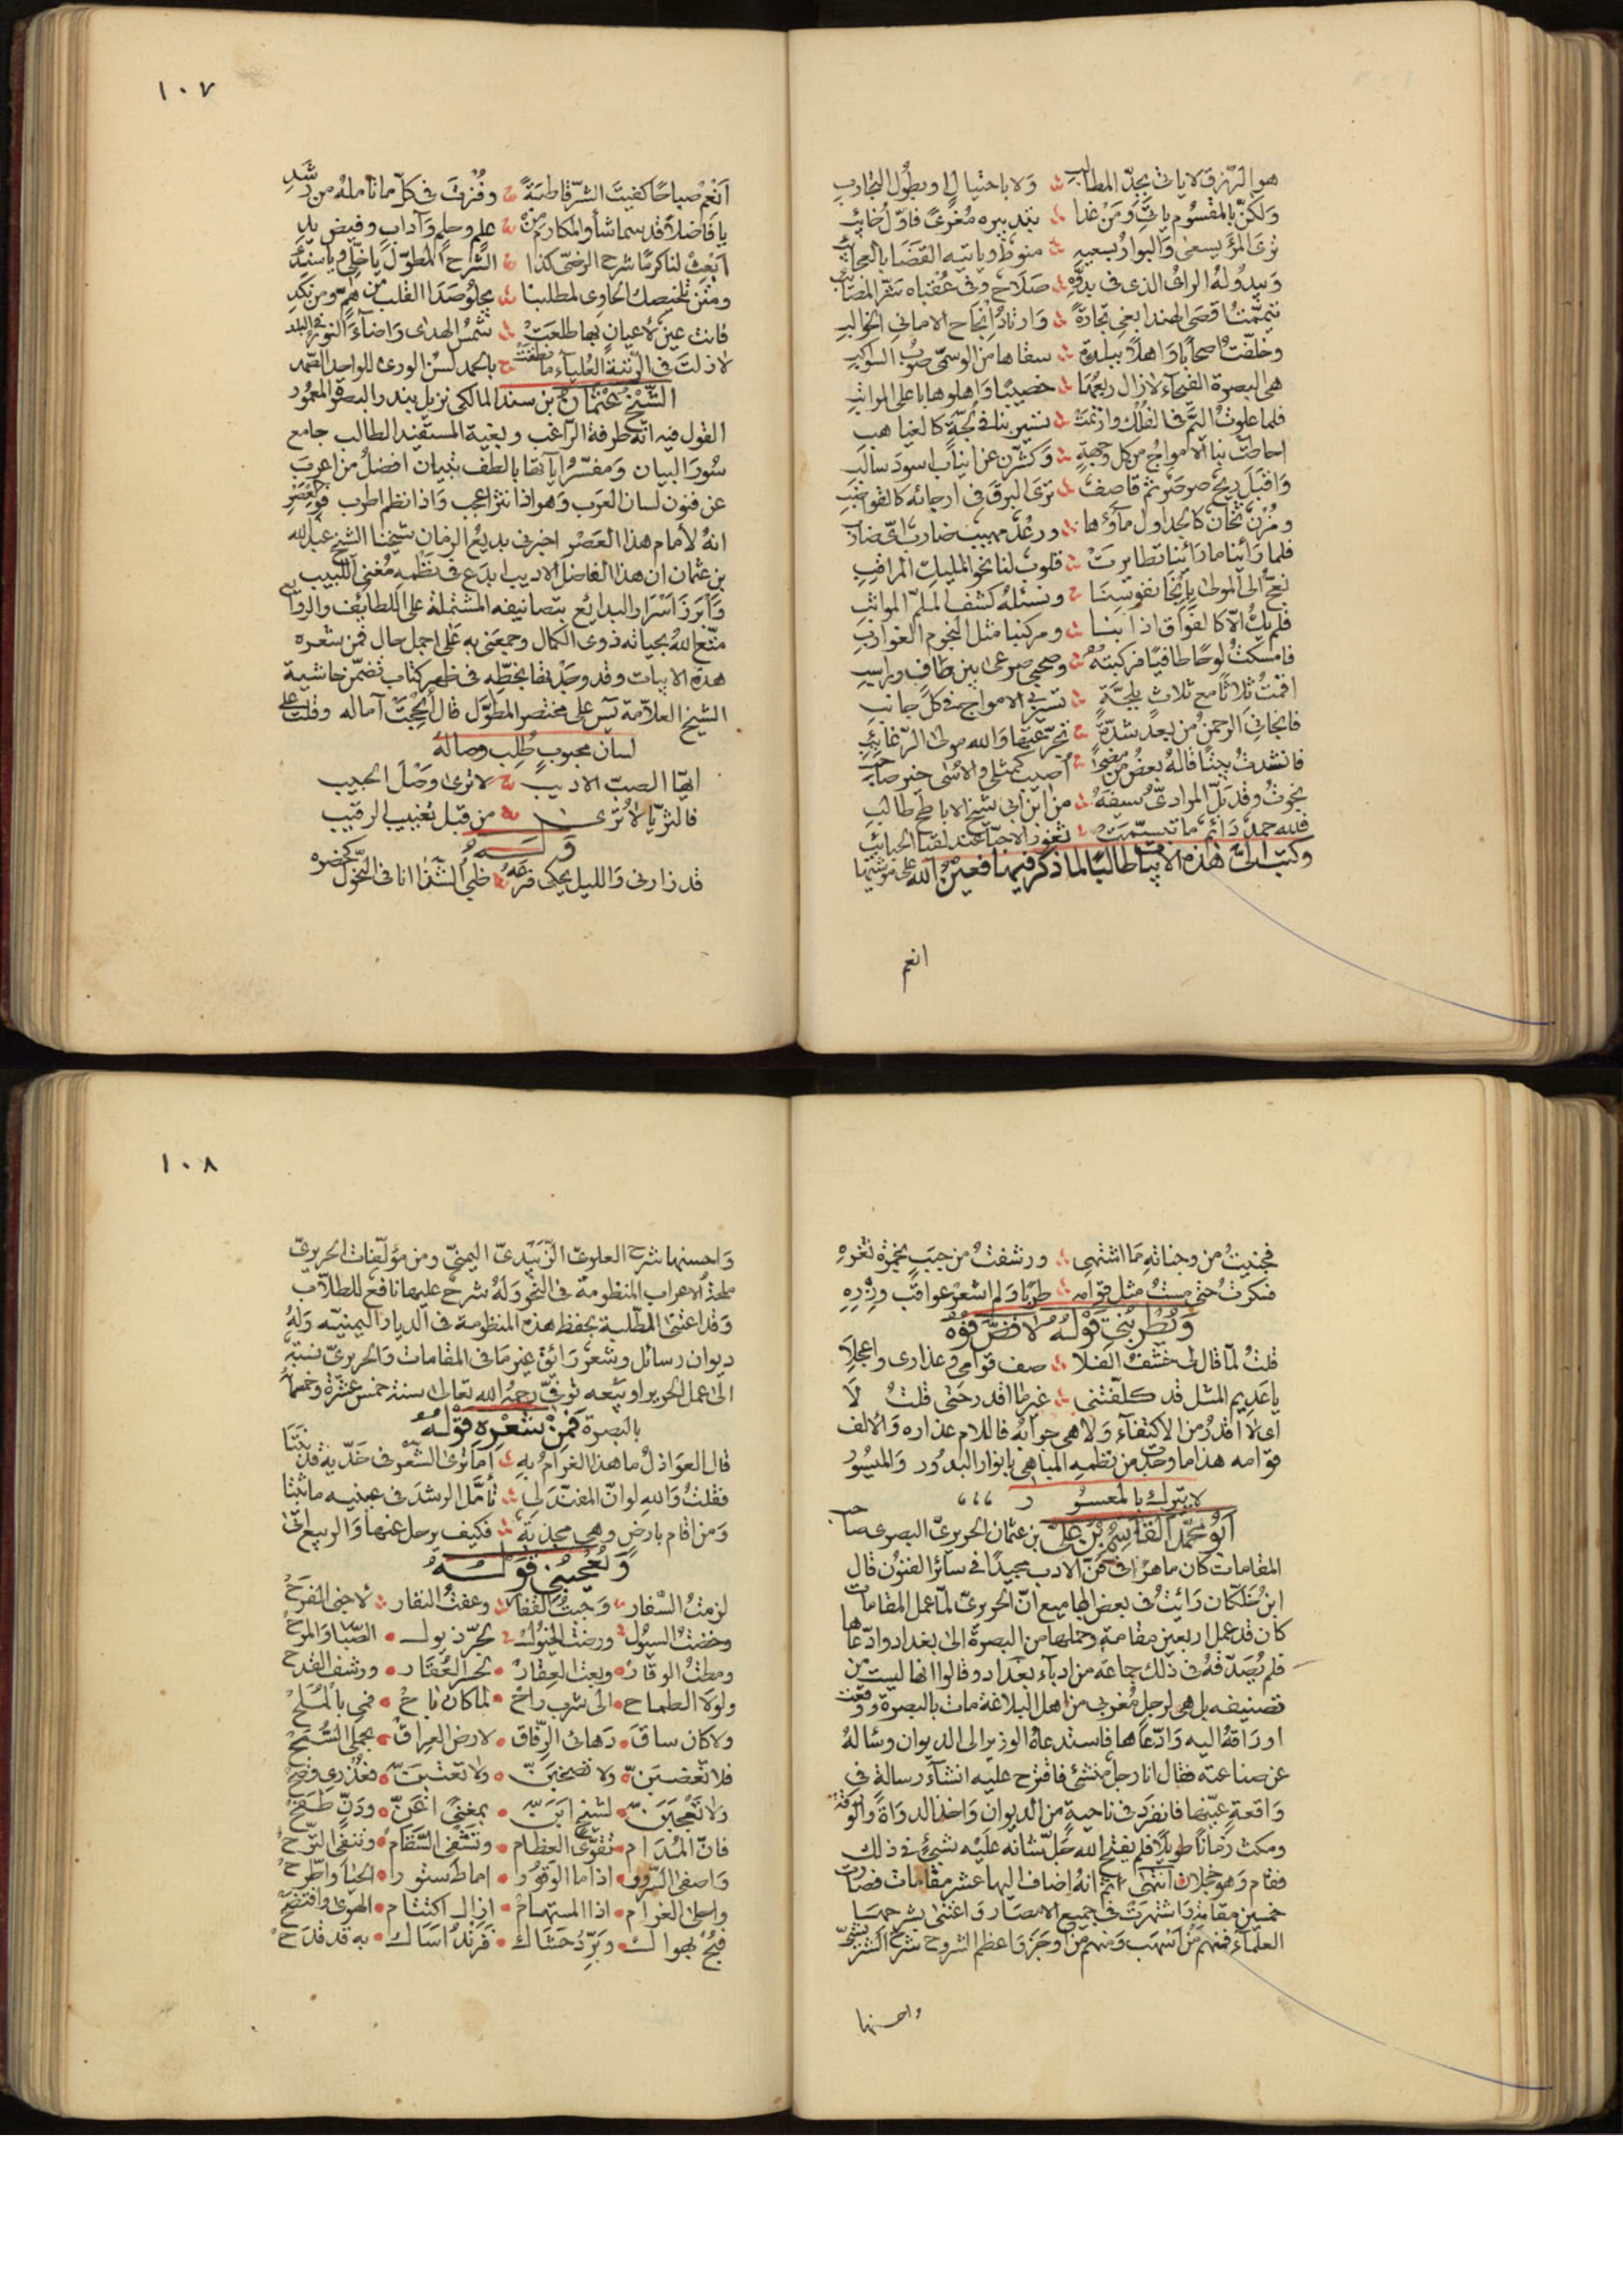 هو الرزق لا ياتى بجدّ المطالب ولا باحتيال او بطول التجارب
ولكن بالمقسوم ياتى ومن غدا بتدبيره مغرى فاول خائب
ترى المرء يسعى والبوار بسعيه منوط وياتيه القضا بالعجائب
ويبدو له الراى الذى فى بدوّه صلاح وفى عقباه شر المصائب
تيممت اقصى الهند ابغى تجارة وارتاد انجاح الامانى الخوالب
وخلفت اصحابا واهلا ببلدة سقاها من الوسمى صوب السواكب
هى البصرة الفيحاء لا زال ربعها خصيبا واهلوها باعلى المراتب
فلما علوت اليم فى الفلك وانتمت تسير بنا فى لجة كالغياهب
احاطت بنا الامواج من كل وجهة وكشرن عن انياب اسود سالب
واقبل ريح صرصر ثم قاصف ترى البرق فى ارجائه كالقواضب
ومزن ثخان كالجداول ماؤها ورعد مهيب ضارب اى ضارب
فلما رأينا ما رأينا تطايرت قلوب لنا نحو المليك المراقب
نعج الى المولى بارخا نفوسنا ونسئله كشف الملم المواثب
فلم يك الا كالفواق اذا بنا ومركبنا مثل النجوم الغوارب
فامسكت لوحا طافيا فركبته وصحبى صرعى بين طاف وراسب
اقمت ثلاثا مع ثلاث بلجة تسيرنى الامواج فى كل جانب
فانجانى الرحمن من بعد شدة تحرعتها والله مولى الرغائب
فانشدت بيتا قاله بعض من مضى اصيب كمثلى والاسى خير صاحب
نجوت وقد بلّ المرادى سيفه من ابن ابى شيخ الاباطح طالب
فلله حمد دائم ما تبسمت ثغور الاحبا عند لقيا الحبائب
وكتب الىّ هذه الابيات طالبا لما ذكر فيها فعين الله على منشيها
انعم
١٠٧
انعم صباحا كفيت الشر قاطبة وفزت فى كل ما تأمله من رشد
يا فاضلا قد سما شأو المكارم من علم وحلم وآداب وفيض يد
ابعث لنا كرما شرح الرضى كذا الشرح المطول يا خلى ويا سندى
ومتن تلخيصك الحاوى لمطلبنا يجلو صدا القلب من هم ومن نكد
فانت عين لاعيان بها طلعت شمس الهدى واضاء النور فى البلد
لا زلت فى الرتبة العلياء ما نطقت بالحمد لسن الورى للواحد الصمد
الشيخ عثمان بن سند المالكى نزيل بندر البصرة المعمور
القول فيه انه طرفة الراغب وبغية المستفيد الطالب جامع
سور البيان ومفسر اياتها بالطف تبيان افضل من اعرب
عن فنون لسان العرب وهو اذا نثر اعجب واذا نظم اطرب فوالعصر
انه لامام هذا العصر اخبرنى بديع الزمان شيخنا الشيخ عبد الله
بن عثمان ان هذا الفاضل الاديب ابدع فى نظمه مغنى اللبيب
وابرز اسرار البدايع بتصانيفه المشتملة على اللطائف والروائع
متع الله بحياته ذوى الكمال وجمعنى به على اجمل حال فمن شعره
هذه الابيات وقد وجدتها بخطه فى ظهر كتاب تضمن حاشية
الشيخ العلامة يس على مختصر المطول قال انجحت آماله وقلت على
لسان محبوب طلب وصاله
ايها الصب الاديب لا ترى وصل الحبيب
فالثريا لا ترى من قبل تغييب الرقيب
وله
قد زارنى والليل يحكى فرعه ظبى الشذا انا فى النحول كخصره
فجنيت من وجناته ما اشتهى ورشفت من حبب بخمرة ثغره
فسكرت حتى مست مثل قوامه طربا ولم اشعر عواقب وزره
ويطربنى قوله لا فض فوه
قلت لما قال لى خشف الفلا صف قوامى وعذارى واعجلا
يا عديم المثل قد كلفتنى غير ما اقدر حتى قلت لا
اى لا اقدر من الاكتفاء ولا هى جوابه فاللام عذاره والالف
قوامه هذا ما وجدت من نظمه المباهى بانوار البدور والميسور
لا يترك بالمعسور
ابو محمد القاسم بن على بن عثمان الحريرى البصرى صاحب
المقامات كان ماهرا فى فن الادب مجيدا فى سائر الفنون قال
ابن خلكان رأيت فى بعض المجاميع ان الحريرى لما عمل المقامات
كان قد عمل اربعين مقامة وحملها من البصرة الى بغداد وادعاها
فلم يصدقه فى ذلك جماعة من ادباء بغداد وقالوا انها ليست من
تصنيفه بل هى لرجل مغربى من اهل البلاغة مات بالبصرة ووقعت
اوراقه اليه وادعاها فاستدعاه الوزير الى الديوان وسأله
عن صناعته فقال انا رجل منشئ فاقترح عليه انشاء رسالة فى
واقعة عينها فانفرد فى ناحية من الديوان واخذ الدواة والورقة
ومكث زمانا طويلا فلم يفتح الله جل شانه عليه بشئ فى ذلك
فقام وهو خجلان انتهى ثم انه اضاف اليها عشر مقامات فصارت
خمسين مقامة واشتهرت فى جميع الامصار واعتنى بشرحها
العلماء فمنهم من اسهب ومنهم من اوجز واعظم الشروح شرح الشريشى
واحسنها
١٠٨
واحسنها شرح العلوى الزبيدى اليمنى ومن مؤلفات الحريرى
ملحة الاعراب المنظومة فى النحو وله شرح عليها نافع للطلاب
وقد اعتنى الطلبة بحفظ هذه المنظومة فى الديار اليمنيه وله
ديوان رسائل وشعر رائق غير ما فى المقامات والحريرى نسبة
الى عمل الحرير او بيعه توفى رحمه الله تعالى سنة خمس عشرة وخمسمائة
بالبصرة فمن شعره قوله
قال العواذل ما هذا الغرام به اما ترى الشعر فى خديه قد نبتا
فقلت والله لو ان المفند لى تأمل الرشد فى عينيه ما ثبتا
ومن اقام بارض وهى مجدبة فكيف يرحل عنها والربيع اتى
ويعجبنى قوله
لزمت السفار وجبت القفار وعفت النفار لاجنى الفرح
وخضت السيول ورضت الخيول لجر ذيول الصبا والمرح
ومطت الوقار وبعت العقار لحسو العقار ورشف القدح
ولولا الطماح الى شرب راح لما كان باح فمى بالملح
ولا كان ساق دهائى الرفاق لارض العراق بحملى السبح
فلا تغضبن ولا تصخبن ولا تعتبن فعذرى وضح
ولا تعجبن لشيخ ابن بمغنى اغن ودن طفح
فان المدام تقوى العظام وتشفى السقام وتنفى الترح
واصفى السرور اذا ما الوقور اماط ستور الحيا واطرح
واحلى الغرام اذا المستهام ازال اكتتام الهوى وافتضح
فبح بهواك وبرد حشاك فزند اساك به قد قدح